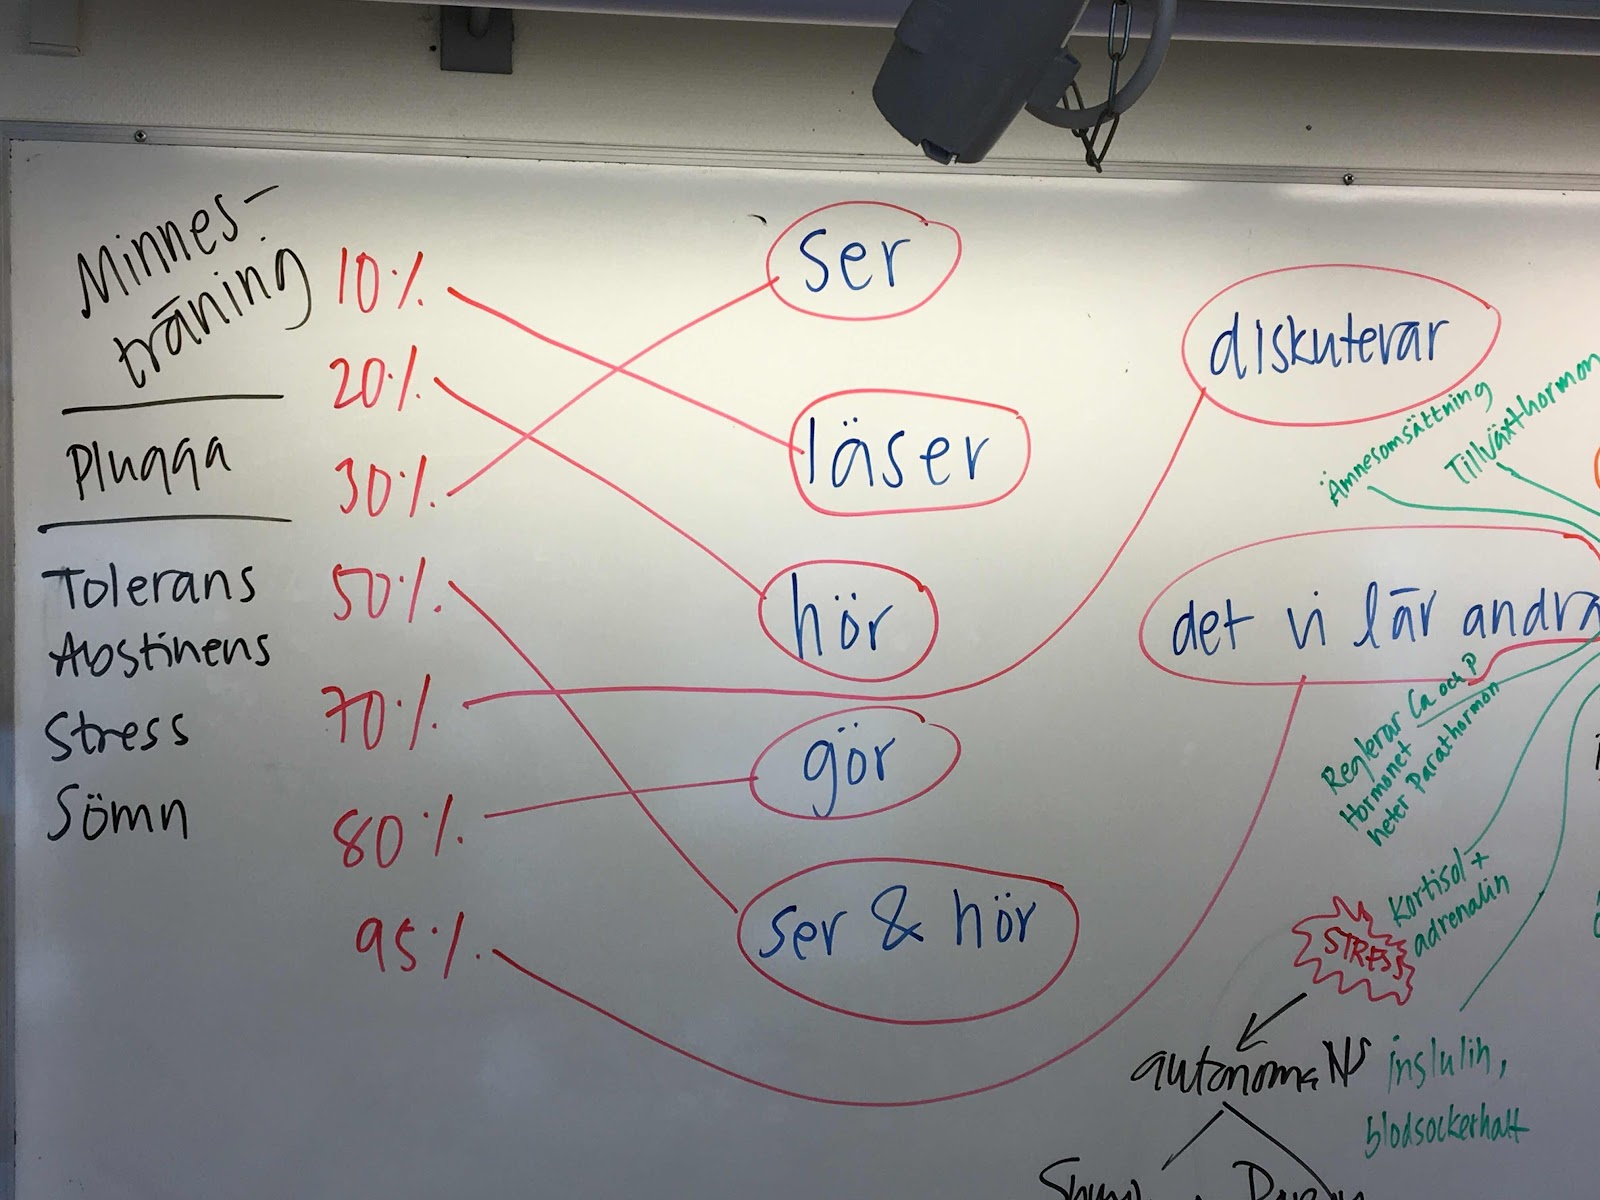 Minnes-
träning
Plugga
Tolerans
Abstinens
Stress
Sömn
10%
20%
30%
50%
70%
80%
95%
ser
läser
hör
gör
ser & hör
diskuterar
det vi lär andra
Ämnesomsättning
Tillväxthormon
Reglerar Ca och P
Hormonet
heter Parathormon
Kortisol +
adrenalin
STRESS
autonoma NS
inslulin,
blodsockerhalt